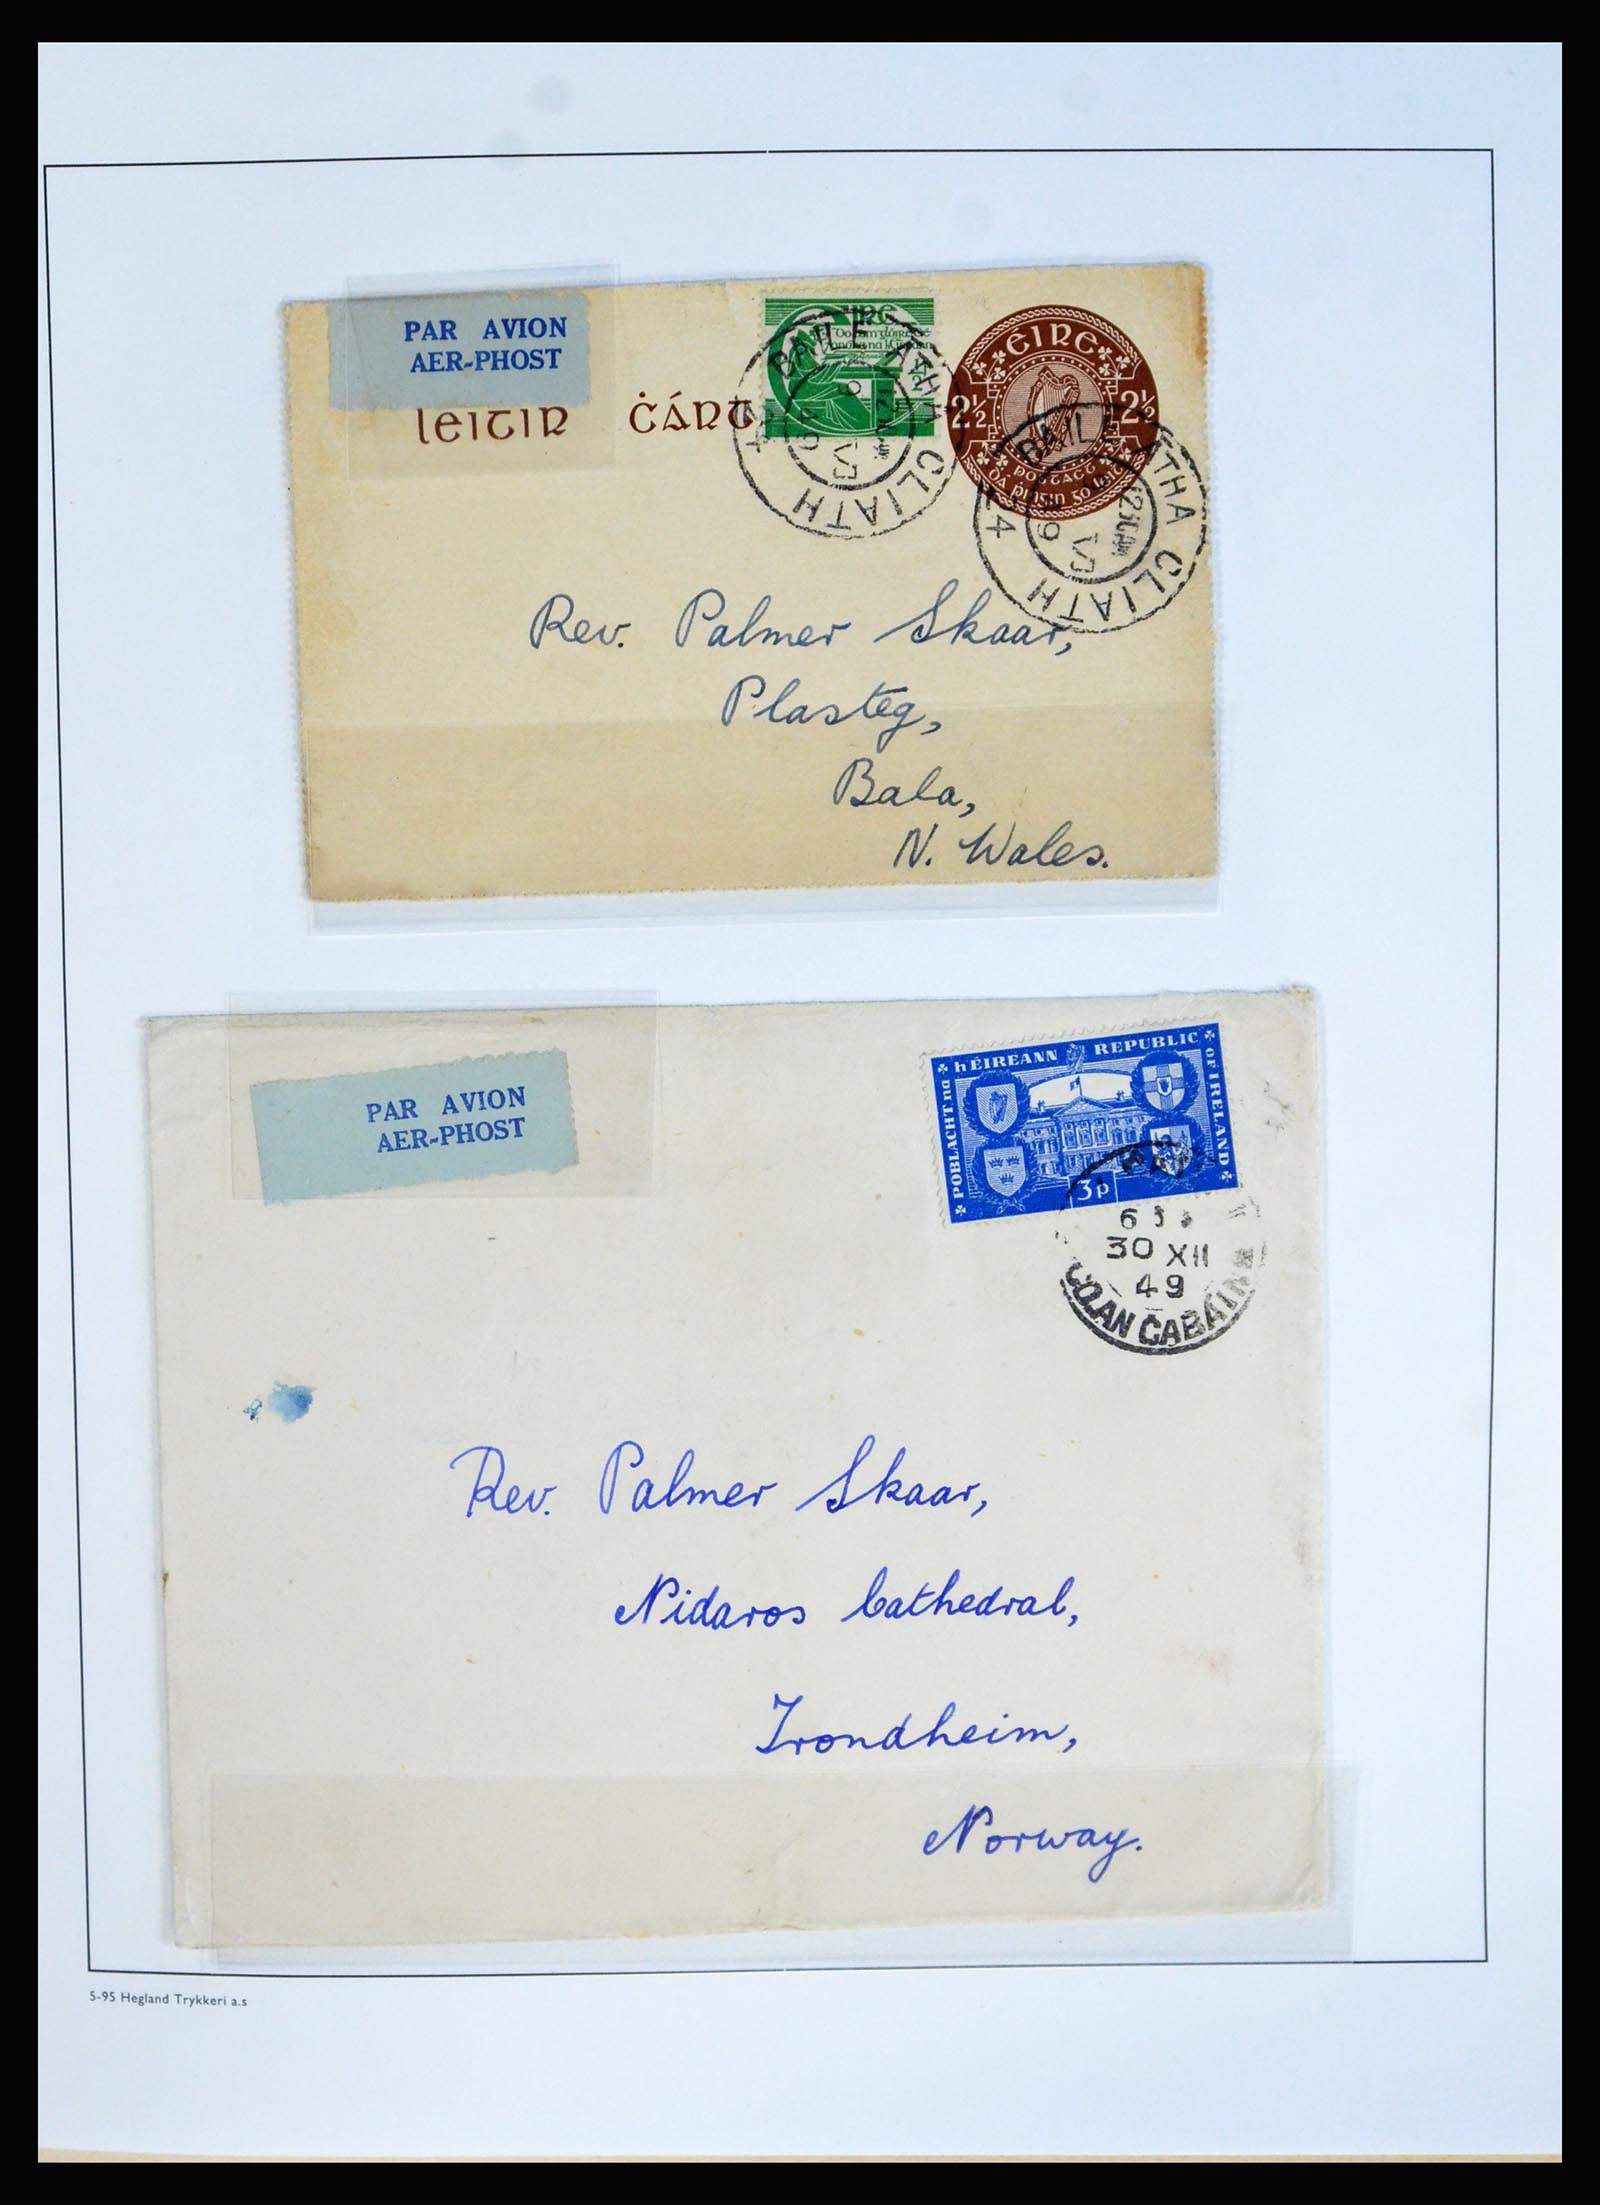 PAR AVION
AER-PHOST
leitir ċárt
éire
2½ 2½
postage
BAILE ATHA CLIATH
6
VI
49
BAILE ATHA CLIATH
6
VI
49
Rev. Palmer Skaar,
Plasteg,
Bala,
N. Wales.
PAR AVION
AER-PHOST
POBLACHT na hÉIREANN REPUBLIC OF IRELAND
3p
30 XII
49
CO. AN ĊABÁIN
Rev. Palmer Skaar,
Nidaros Cathedral,
Trondheim,
Norway.
5-95 Hegland Trykkeri a.s